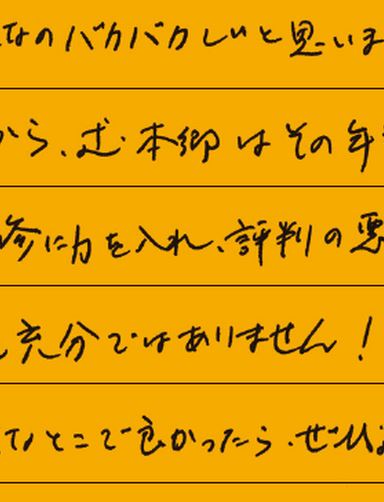 なのバカバカしいと思いま
から、述・本郷はその年
修に力を入れ、評判の悪
充分ではありません!
なとこで良かったら、ぜひ